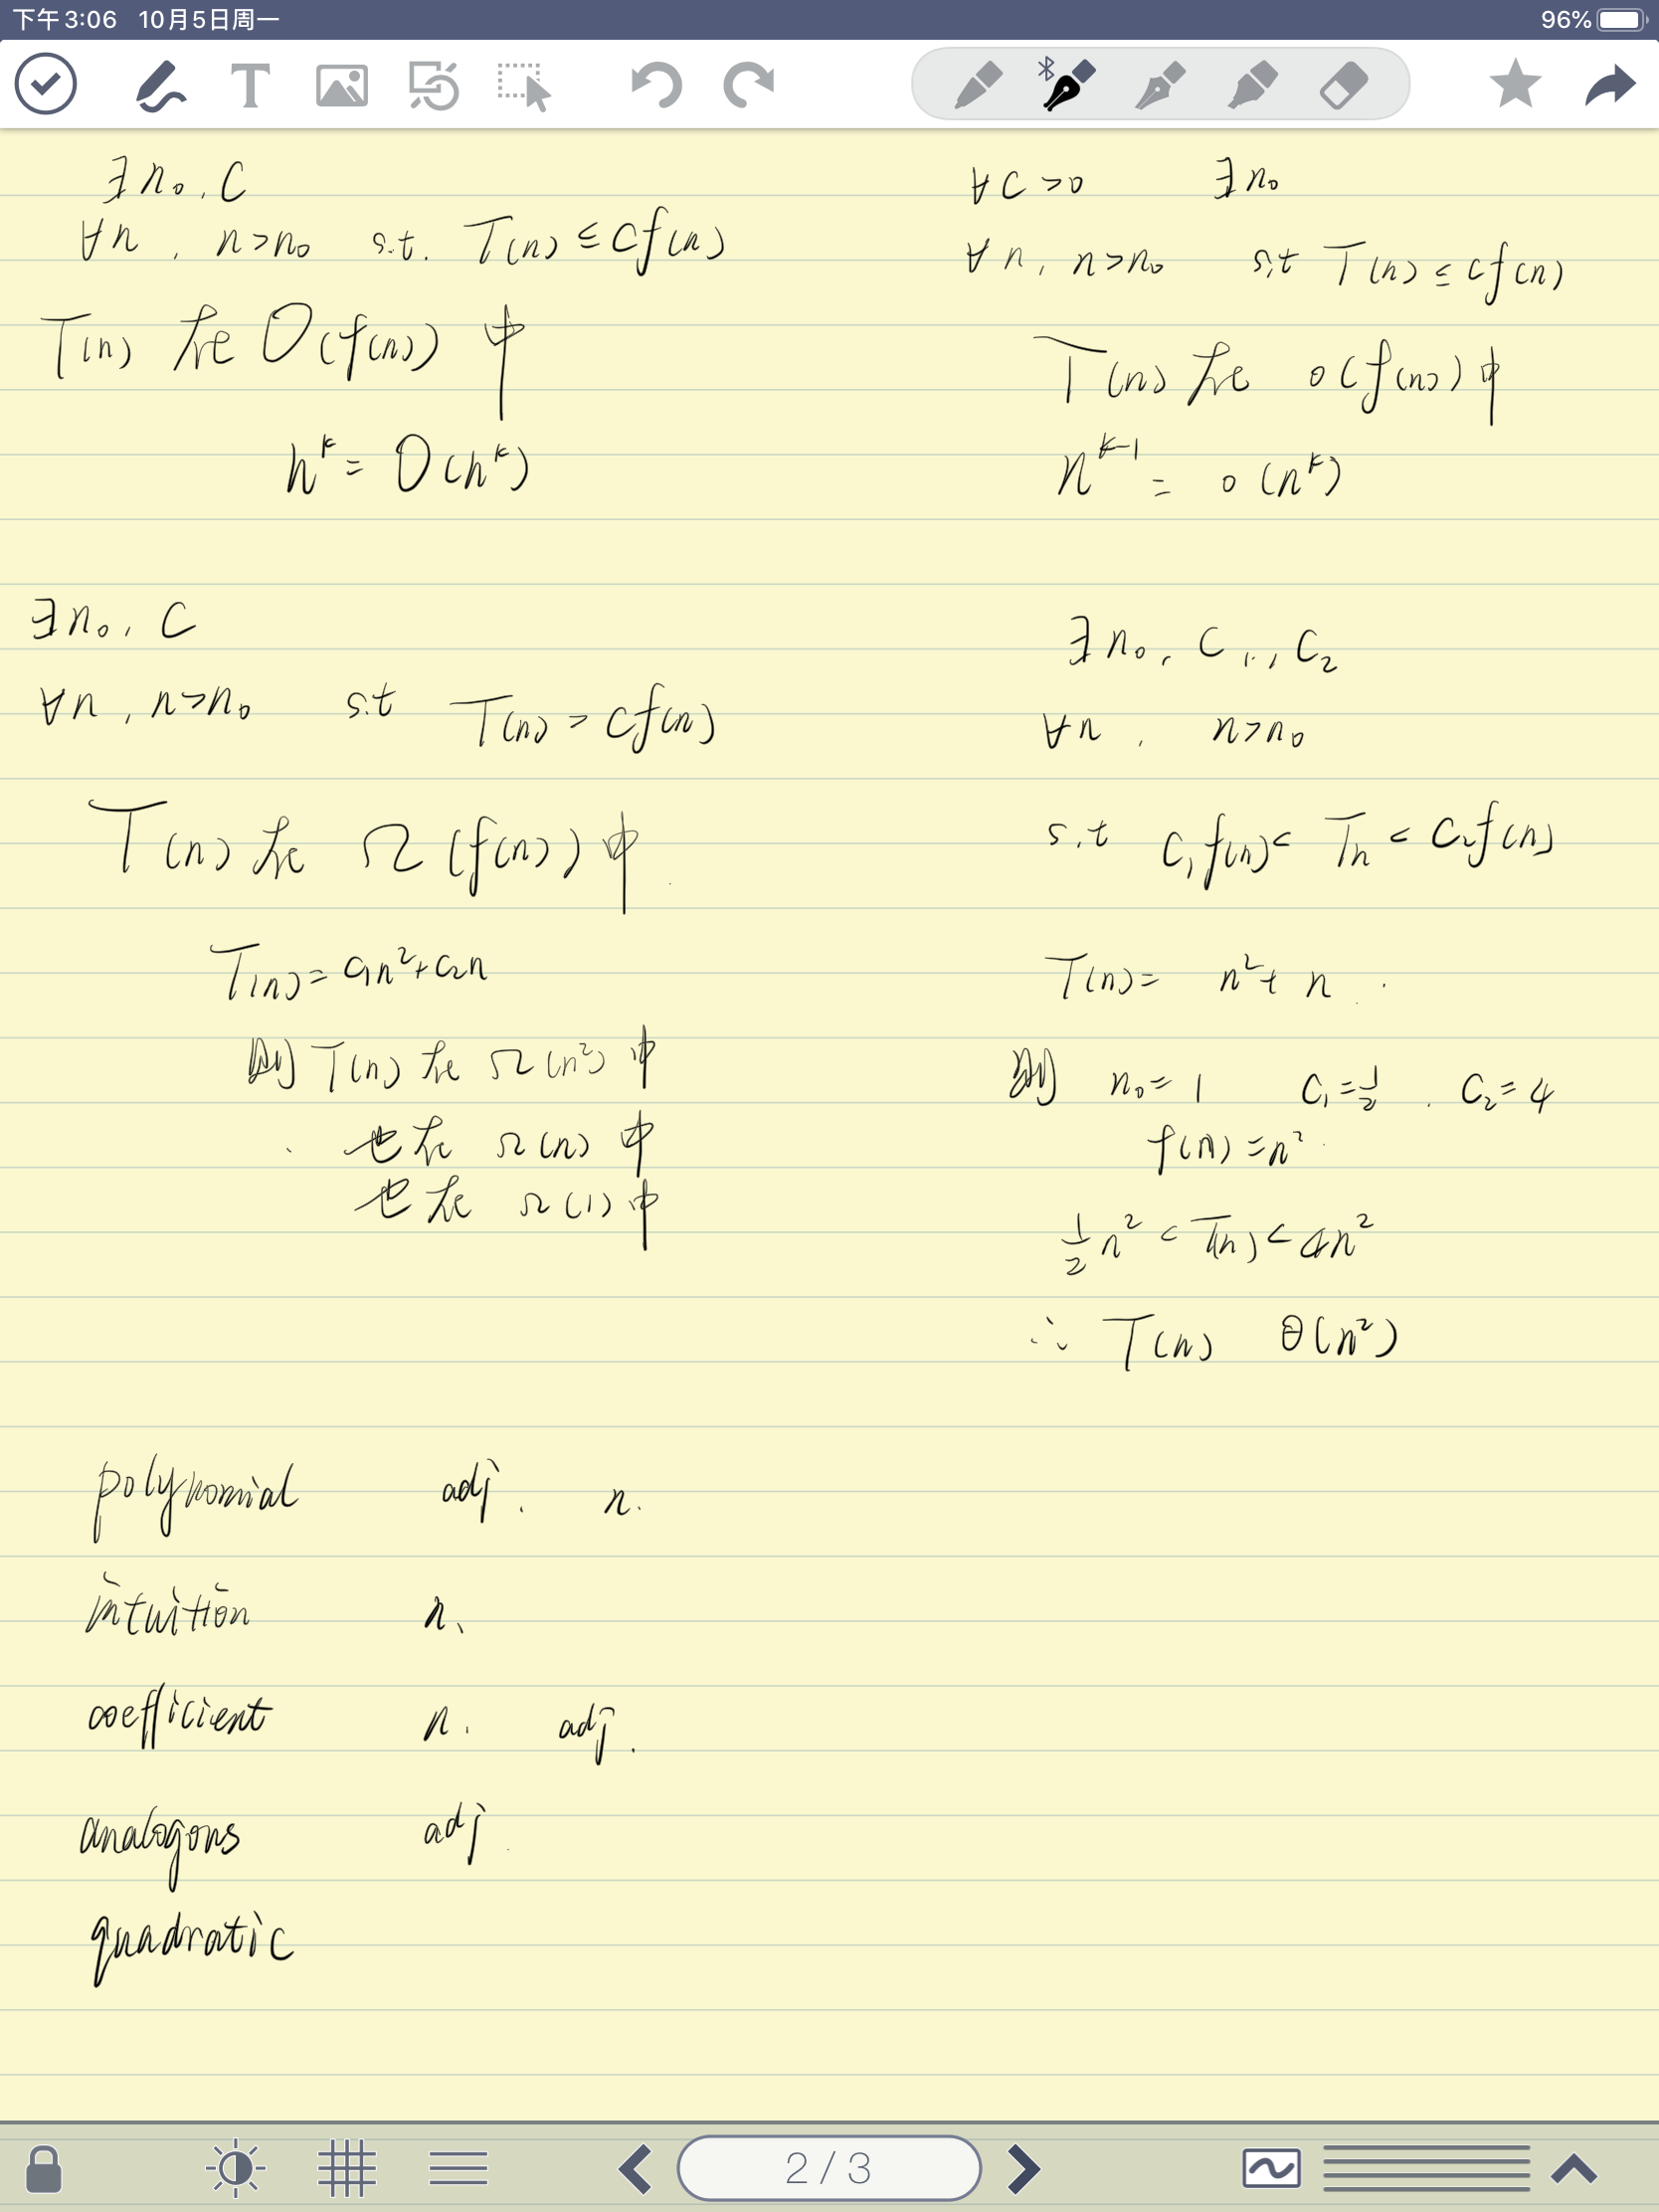 下午3:06 10月5日周一
96%
T
∃n₀, C
∀n, n>n₀ s.t. T(n) ≤ cf(n)
T(n) 在 O(f(n)) 中
nᵏ = O(nᵏ)
∀C>0 ∃n₀
∀n, n>n₀ s,t T(n) ≤ cf(n)
T(n) 在 o(f(n)) 中
nᵏ⁻¹ = o(nᵏ)
∃n₀, C
∀n, n>n₀ s.t T(n) > cf(n)
T(n) 在 Ω(f(n)) 中
T(n) = c₁n²+c₂n
则 T(n) 在 Ω(n²) 中
也在 Ω(n) 中
也在 Ω(1) 中
∃n₀, C₁, C₂
∀n, n>n₀
s,t C₁f(n) < Tn < C₂f(n)
T(n) = n²+n
则 n₀=1 C₁=1/2, C₂=4
f(n)=n²
1/2 n² < T(n) < 4n²
∴ T(n) θ(n²)
polynomial adj. n.
intuition n.
coefficient n. adj.
analogous adj
quadratic
2 / 3